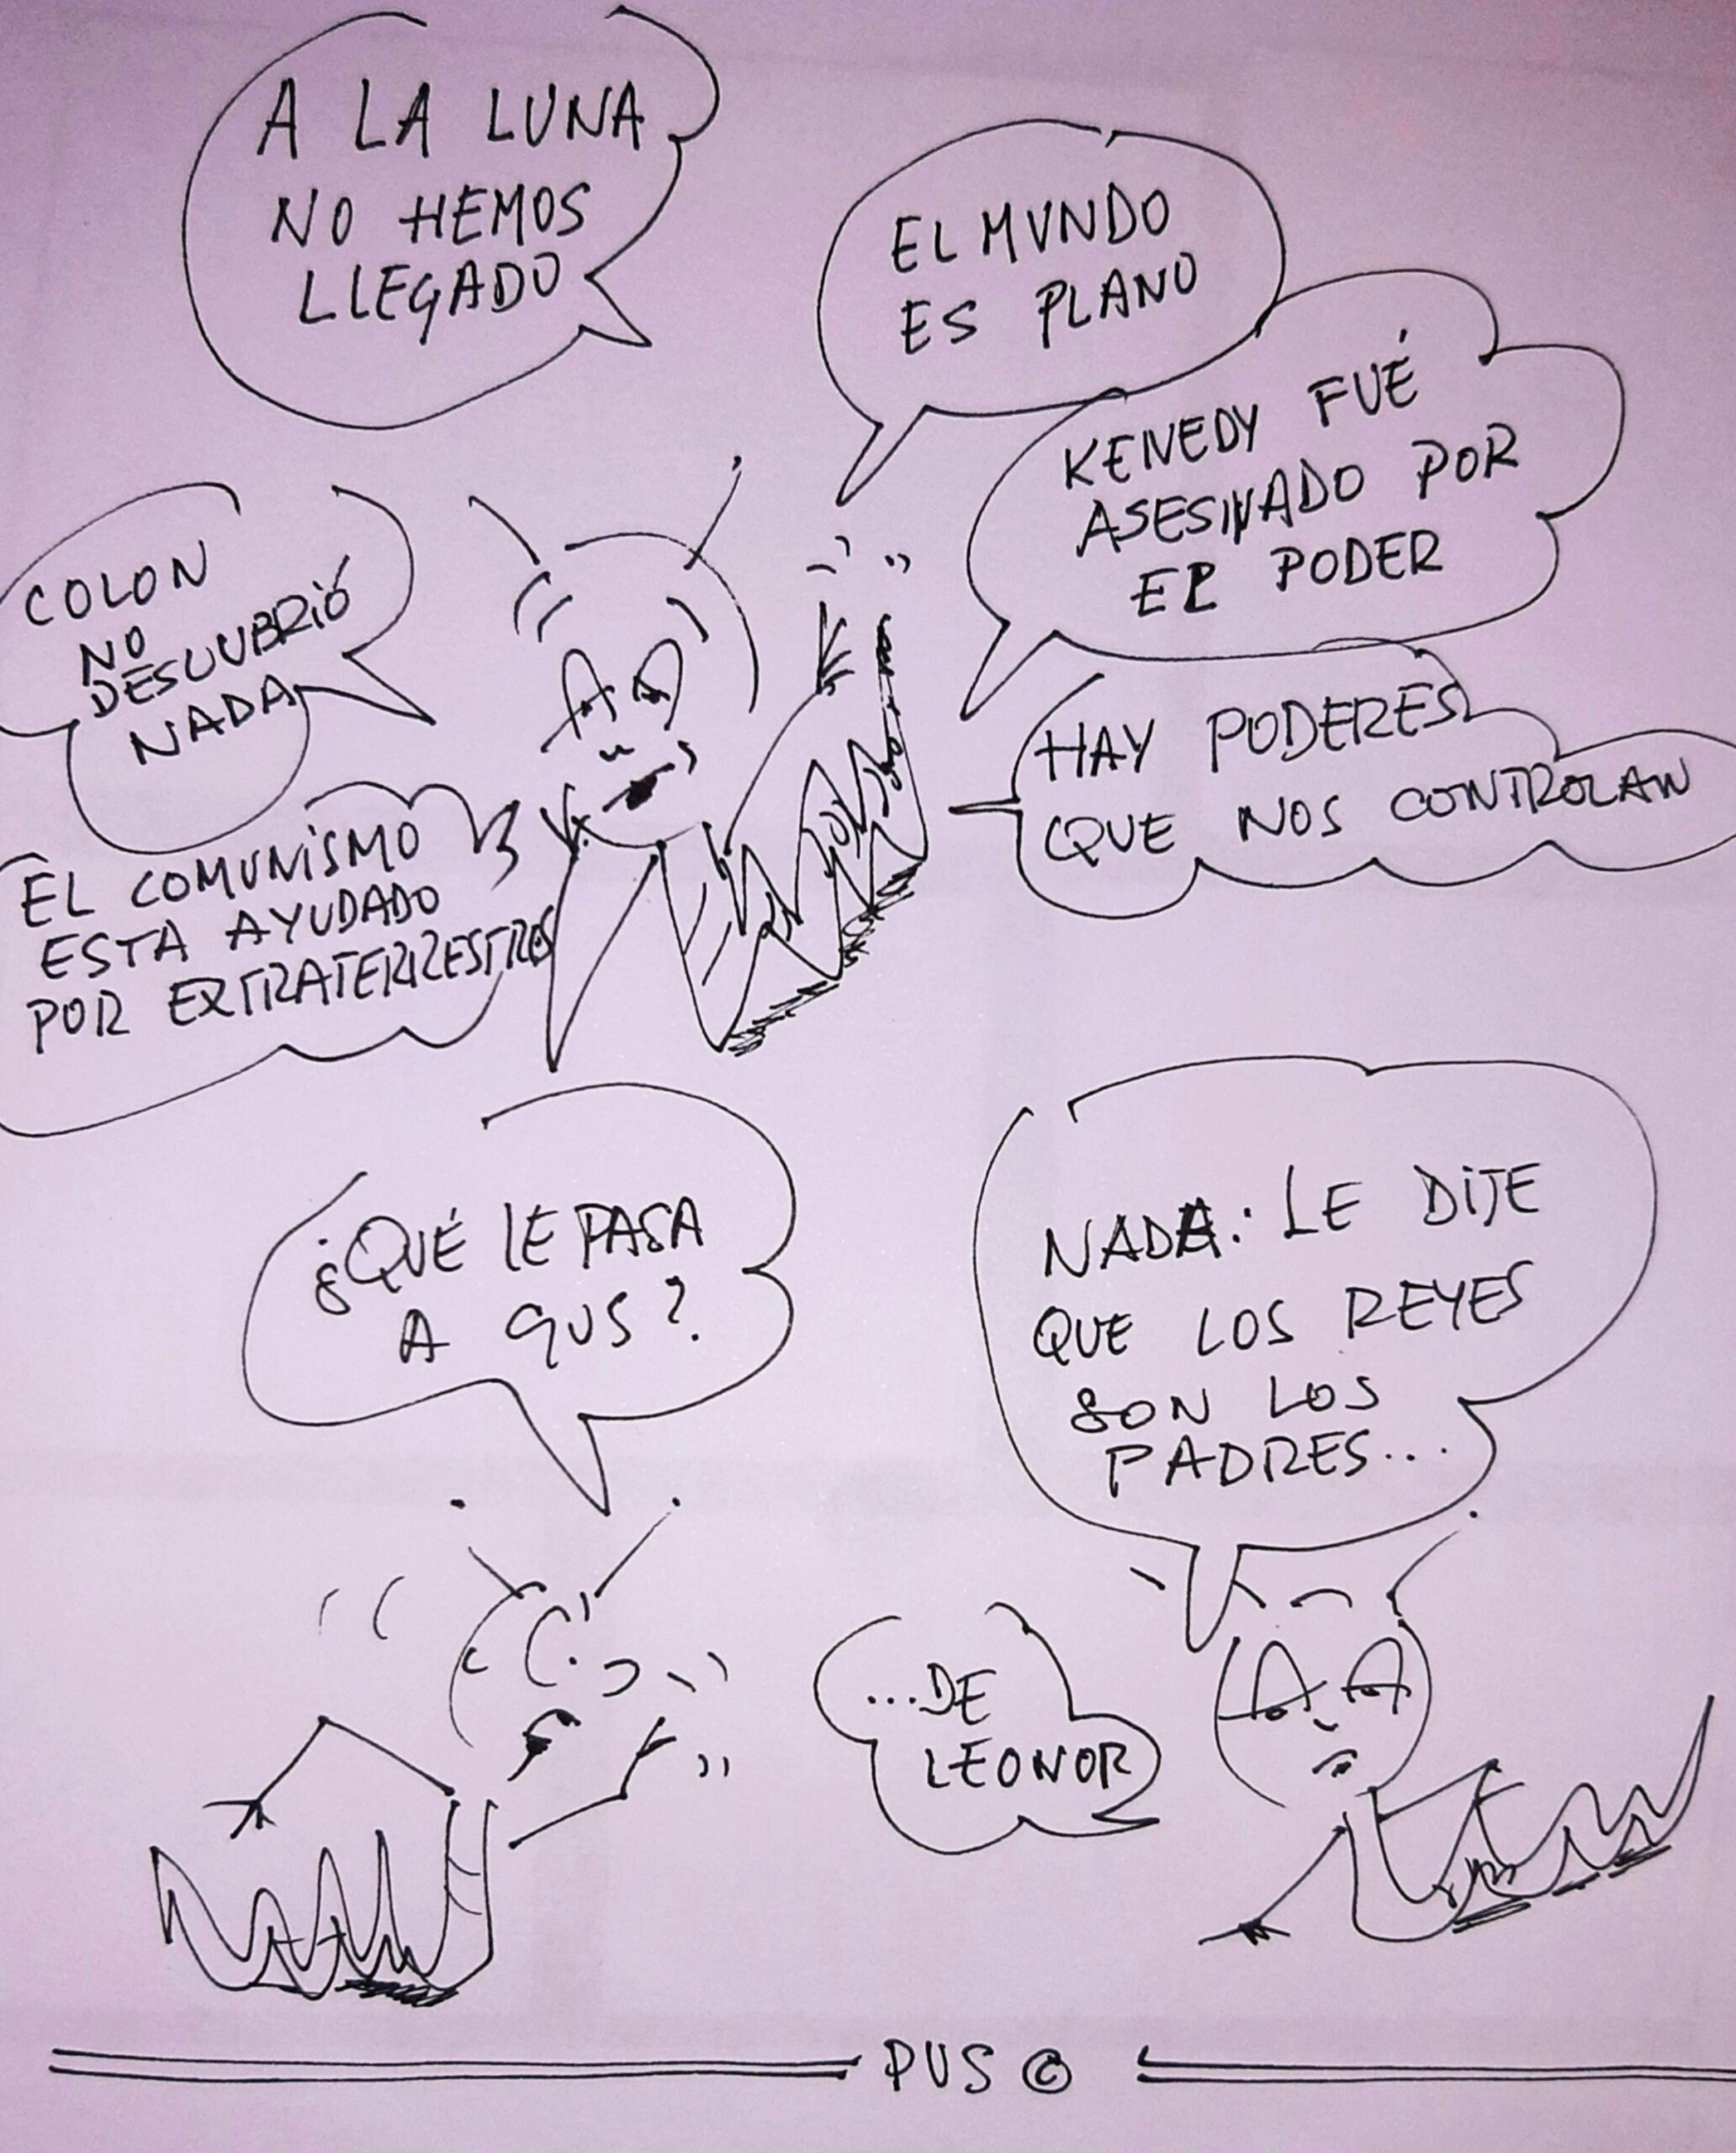 A LA LUNA
NO HEMOS
LLEGADO
EL MUNDO
ES PLANO
KENEDY FUÉ
ASESINADO POR
EL PODER
COLON
NO
DESCUBRIÓ
NADA
HAY PODERES
QUE NOS CONTROLAN
EL COMUNISMO
ESTA AYUDADO
POR EXTRATERRESTRES
¿QUÉ LE PASA
A GUS?
NADA: LE DIJE
QUE LOS REYES
SON LOS
PADRES...
...DE
LEONOR
PUS ©